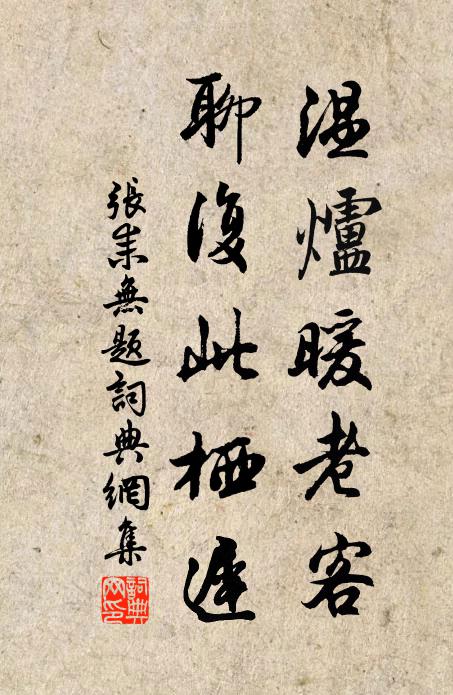 温爐暖老客
聊復此栖遲
張耒無題詞典網集
詞典網印